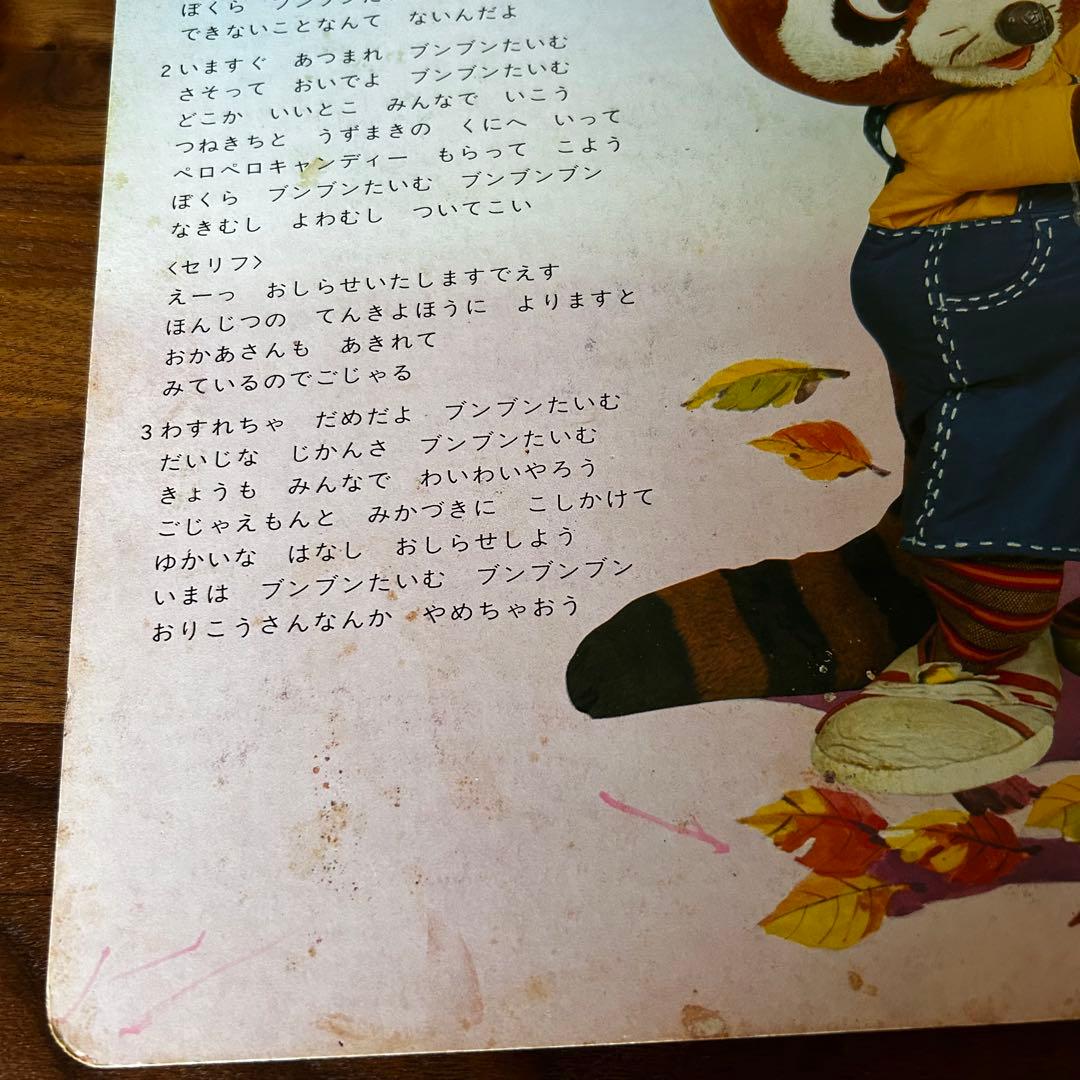 ぼくら　ブンブンた
できないことなんて　ないんだよ
2 いますぐ　あつまれ　ブンブンたいむ
さそって　おいでよ　ブンブンたいむ
どこか　いいとこ　みんなで　いこう
つねきちと　うずまきの　くにへ　いって
ペロペロキャンディー　もらって　こよう
ぼくら　ブンブンたいむ　ブンブンブン
なきむし　よわむし　ついてこい
〈セリフ〉
えーっ　おしらせいたしますでえす
ほんじつの　てんきよほうに　よりますと
おかあさんも　あきれて
みているのでごじゃる
3 わすれちゃ　だめだよ　ブンブンたいむ
だいじな　じかんさ　ブンブンたいむ
きょうも　みんなで　わいわいやろう
ごじゃえもんと　みかづきに　こしかけて
ゆかいな　はなし　おしらせしよう
いまは　ブンブンたいむ　ブンブンブン
おりこうさんなんか　やめちゃおう